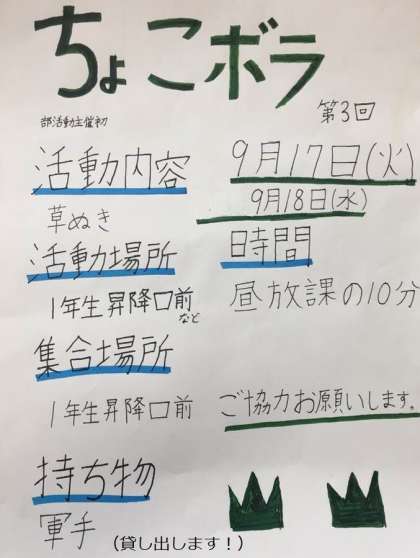 ちょこボラ
第3回
部活動主催初
活動内容
草ぬき
9月17日(火)
9月18日(水)
活動場所
1年生昇降口前など
時間
昼放課の10分
集合場所
1年生昇降口前
ご協力お願いします。
持ち物
軍手
(貸し出します!)